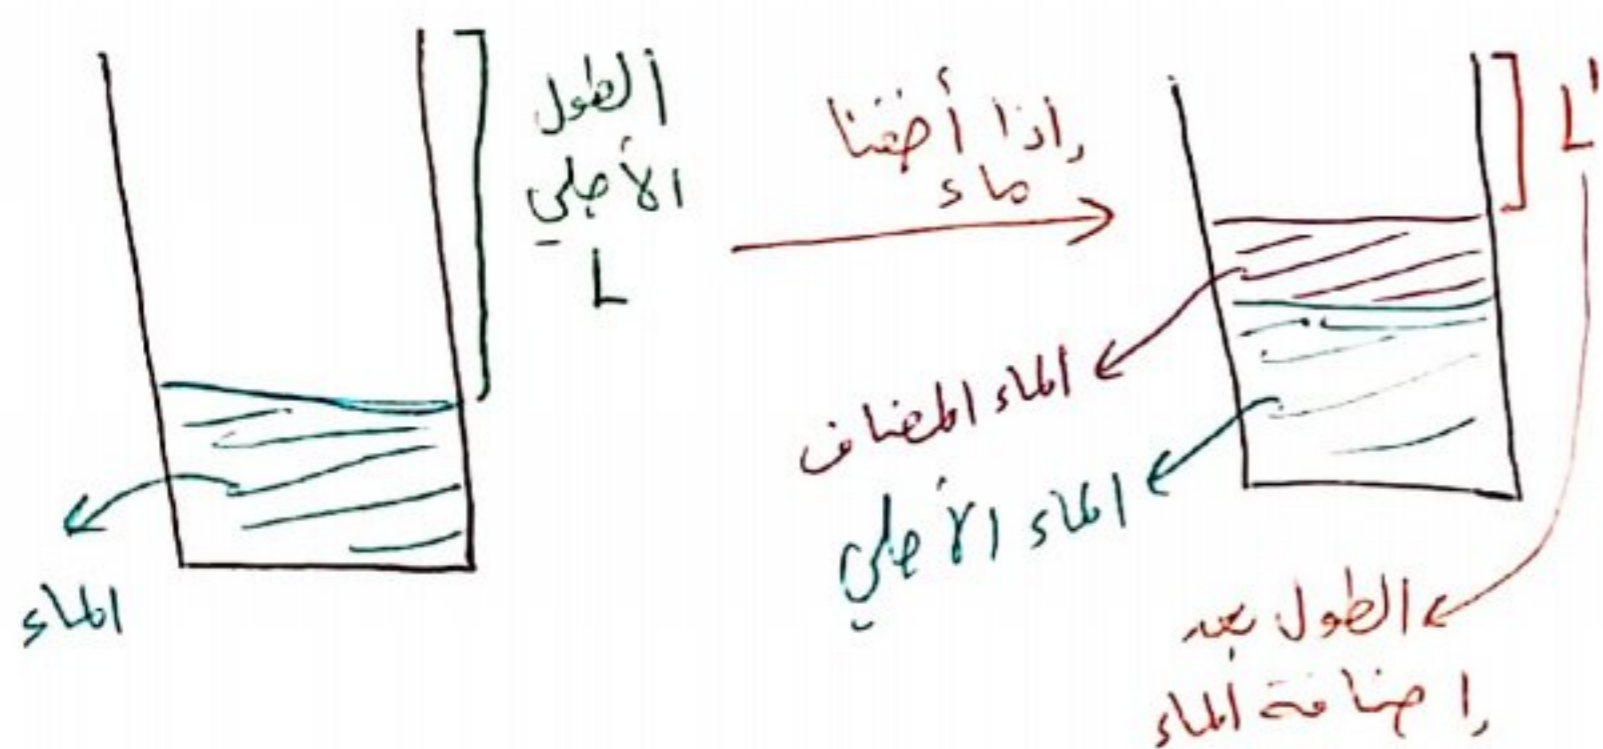 الطول
الأصلي
L
الماء
إذا أضفنا
ماء
L'
الماء المضاف
الماء الأصلي
الطول بعد
إضافة الماء